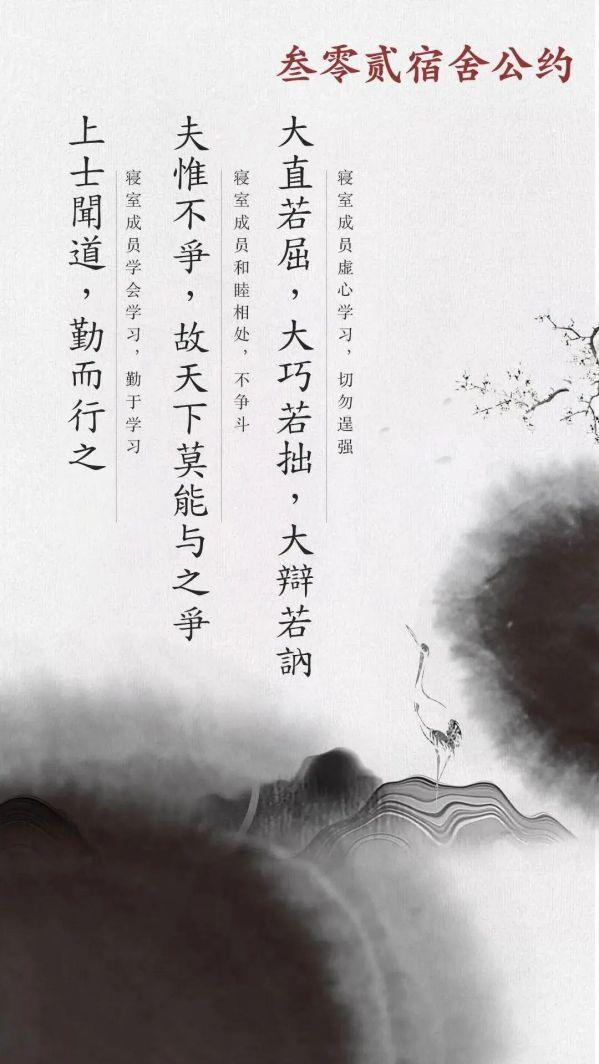 叁零贰宿舍公约
寝室成员虚心学习，切勿逞强
大直若屈，大巧若拙，大辯若訥
寝室成员和睦相处，不争斗
夫惟不爭，故天下莫能与之爭
寝室成员学会学习，勤于学习
上士聞道，勤而行之